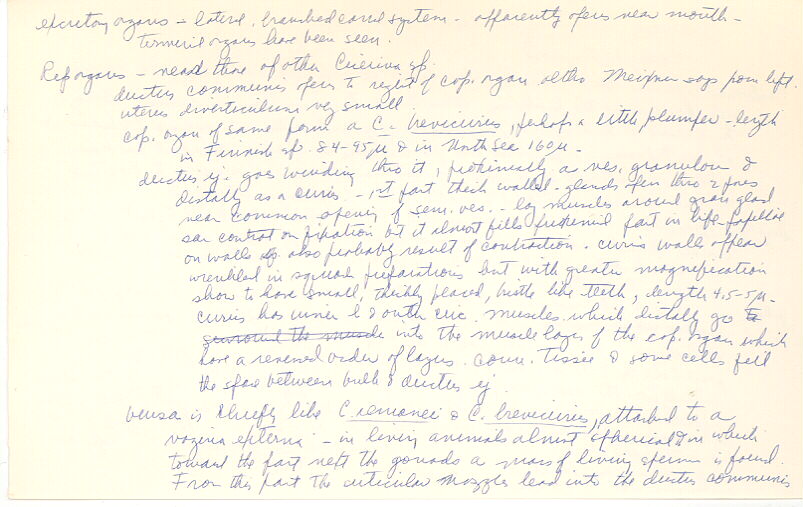 excretory organs – lateral, branched canal system – apparently opens near mouth –
terminal organs have been seen.
Rep organs – near those of other Cicerina sp.
ductus communis opens to right of cop. organ altho Meixner says from left.
uterus diverticulum very small
cop. organ of same form as C. brevicirrus, perhaps a little plumper – length
in Finnish sp. 84-95µ & in North Sea 160µ –
ductus ej. goes winding thro it, proximally a ves. granulorum &
distally as a cirrus – 1st part thick walled – glands open thro 2 pores
near common opening of sem. ves. – long muscles around gran glad
san contrat on fixation bt it almost fills proximal part in life. Papillae
on walls also probably result of contraction. cirrus walls appear
wrinkled in squash preparations but with greater magnification
show to have small, thickly placed, bristle like teeth, length 4,5-5µ –
cirrus has inner l & outer circ. muscles which distally go to
surround the muscle into the muscle layer of the cop. organ which
have a reversed order of layers. conn. tissue & some cells fill
the space between bulb & ductus ej
bursa is chiefly like C. remanei & C. brevicirrus, attached to a
vagina externa – in living animals almost spherical & in which
toward the part next the gonads a mass of living sperm is found.
From this part the cuticular mozzles lead into the ductus communis